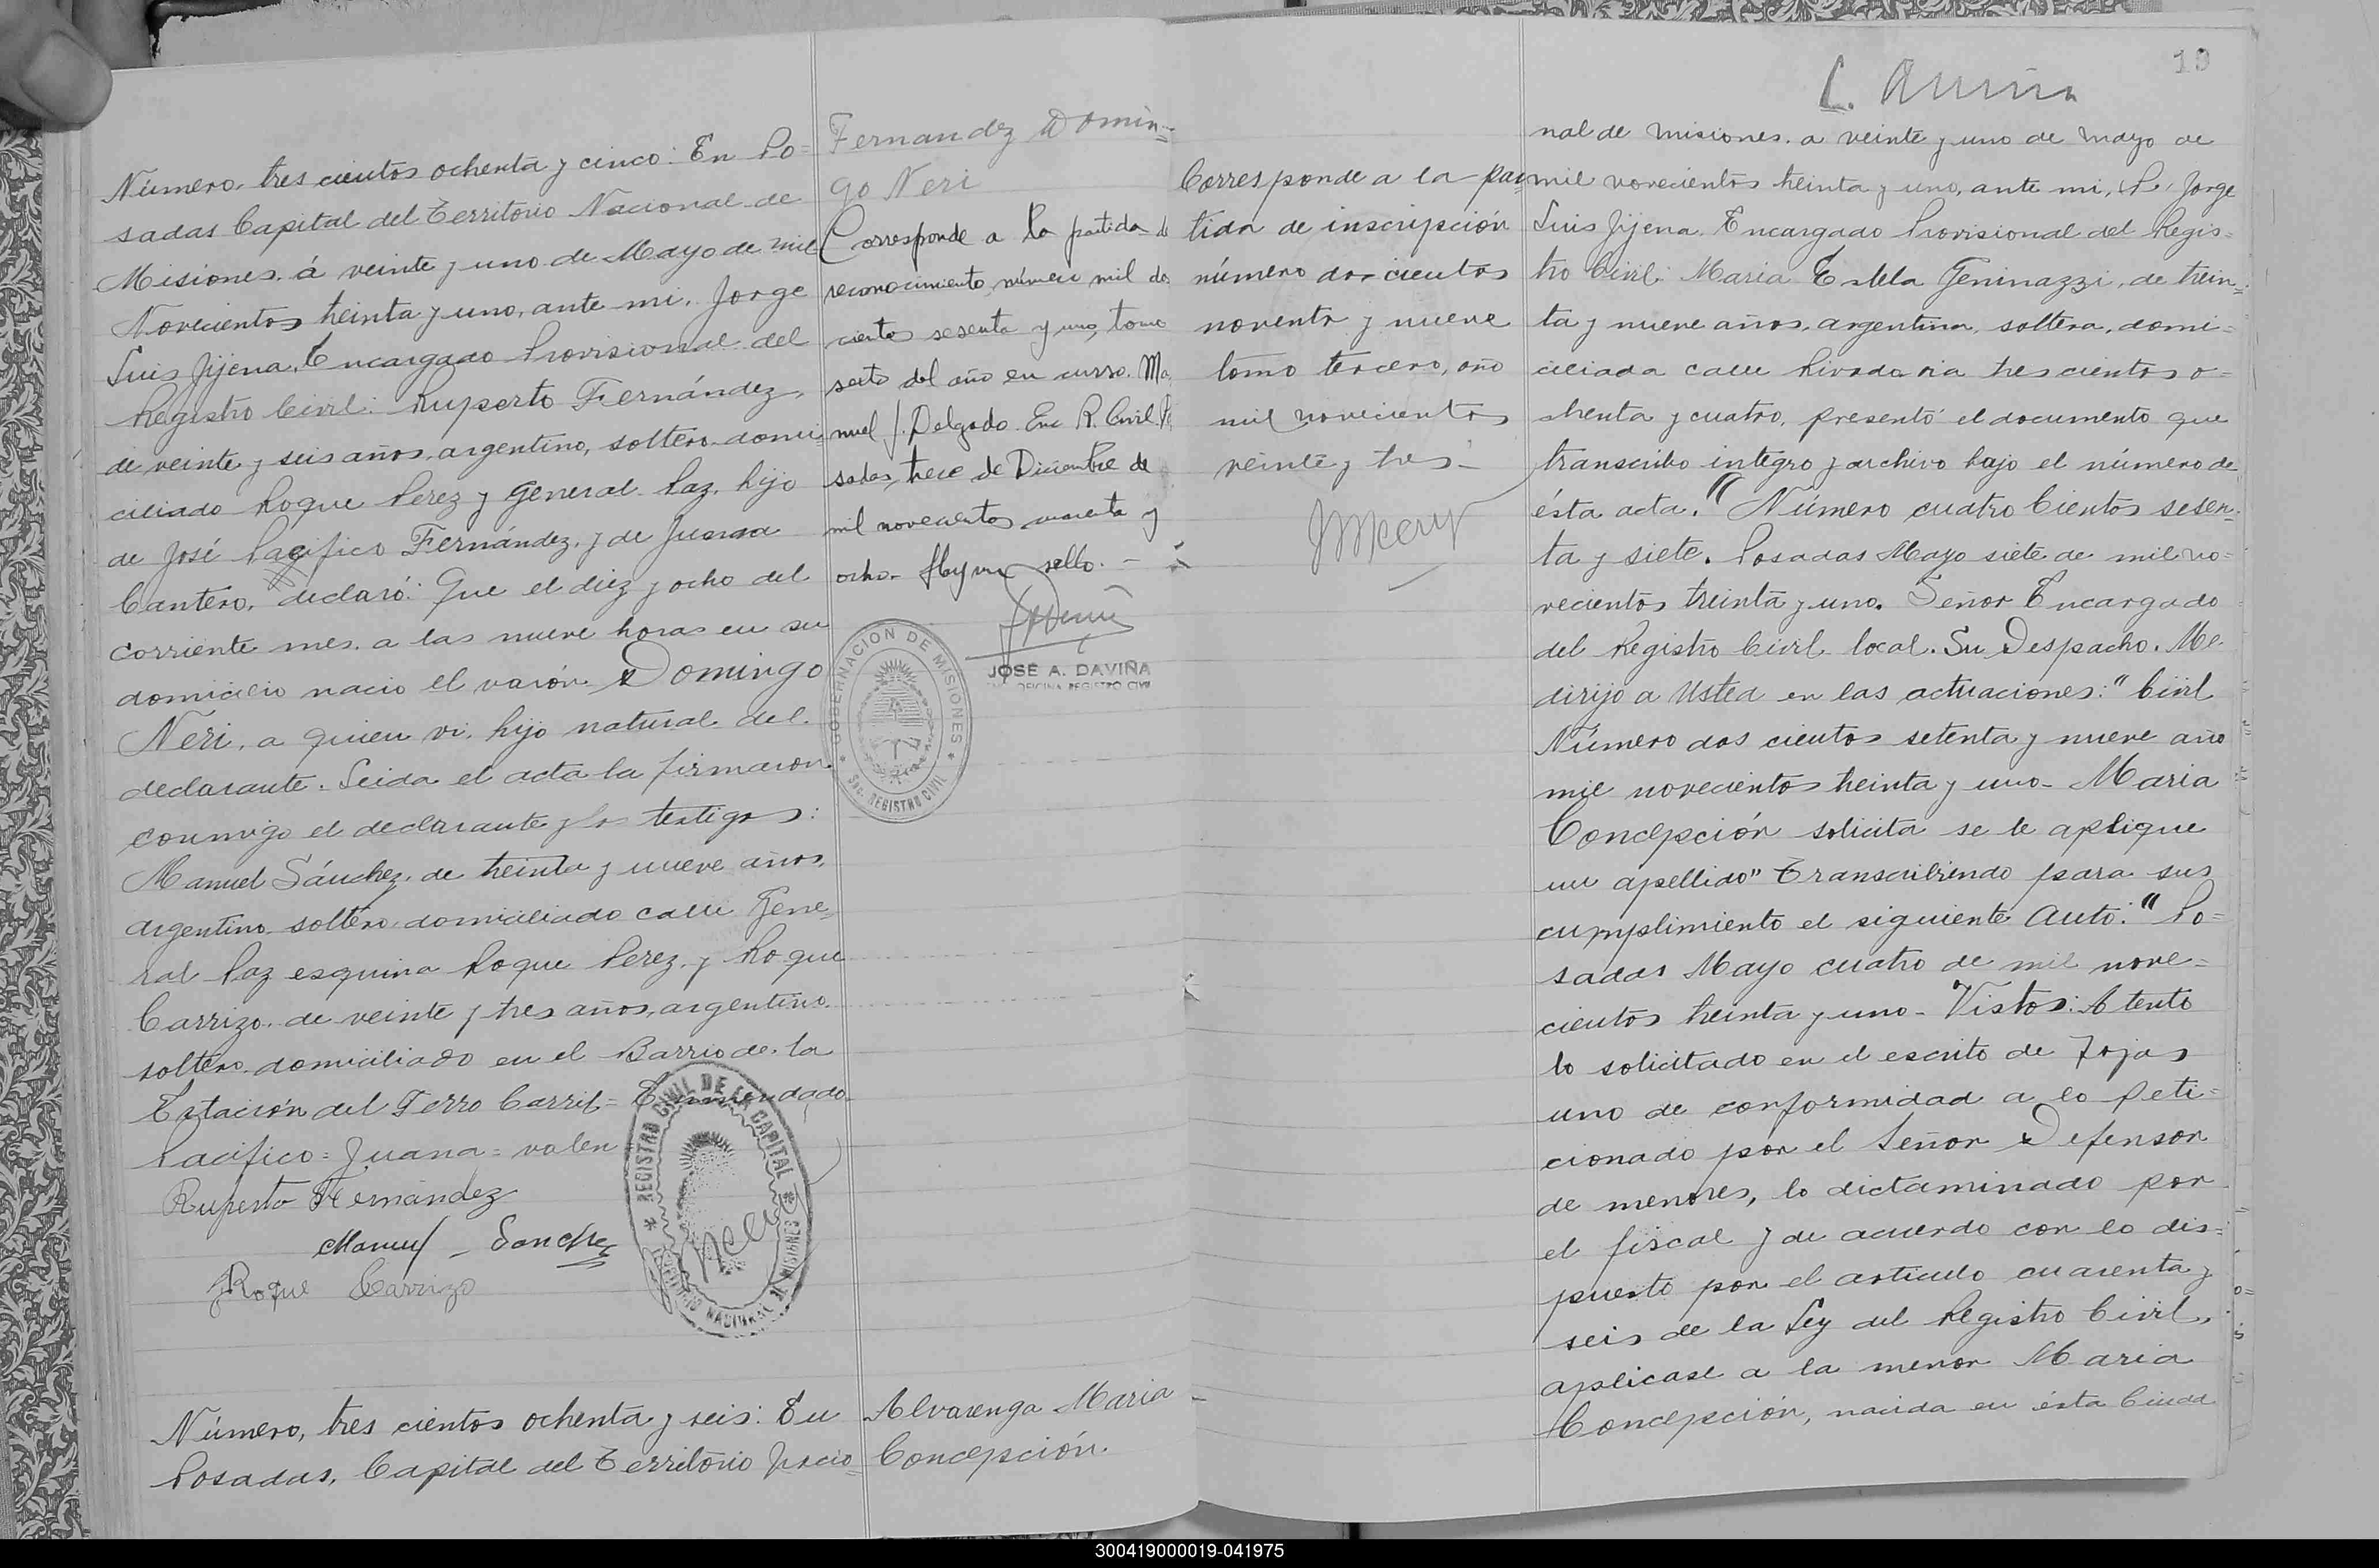 Número, tres cientos ochenta y cinco: En Po=
sadas Capital del Territorio Nacional de
Misiones, á veinte y uno de Mayo de mil
Novecientos treinta y uno, ante mi, Jorge
Luis Jijena, Encargado Provisional del
Registro Civil: Ruperto Fernández,
de veinte y seis años, argentino, soltero, domi
ciliado Roque Perez y General Paz, hijo
de José Pacifico Fernández, y de Juana
Cantero, declaró: Que el diez y ocho del
corriente mes, a las nueve horas en su
domicilio nacio el varón Domingo
Neri, a quien vi, hijo natural del
declarante. Leida el acta la firmaron
conmigo el declarante y los testigos:
Manuel Sánchez, de treinta y nueve años,
argentino, soltero, domiciliado calle Gene=
ral Paz esquina Roque Perez, y Roque
Carrizo, de veinte y tres años, argentino,
soltero, domiciliado en el Barrio de la
Estación del Ferro Carril= Enmendado
Pacífico= Juana= valen
Ruperto Fernández
Manuel Sanchez
Roque Carrizo
REGISTRO CIVIL DE LA CAPITAL
TERRITORIO NACIONAL DE MISIONES
Número, tres cientos ochenta y seis: En
Posadas, Capital del Territorio Nacio=
Fernandez Domin=
go Neri
Corresponde a la partida de
reconocimiento, número mil dos
cientos sesenta y uno, tomo
sexto del año en curso. Ma
nuel J. Delgado. Enc. R. Civil. Po
sadas, trece de Diciembre de
mil novecientos cuarenta y
ocho. Hay un sello. -
JOSE A. DAVIÑA
OFICINA REGISTRO CIVIL
GOBERNACION DE MISIONES
SEC. REGISTRO CIVIL
Alvarenga Maria
Concepción.
Corresponde a la par
tida de inscripción
número dos cientos
noventa y nueve
tomo tercero, año
mil novecientos
veinte y tres -
19
nal de Misiones, a veinte y uno de Mayo de
mil novecientos treinta y uno, ante mi, Jorge
Luis Jijena, Encargado Provisional del Regis=
tro Civil: Maria Estela Geninazzi, de trein=
ta y nueve años, argentina, soltera, domi=
ciliada calle Rivadavia tres cientos o=
chenta y cuatro, presentó el documento que
transcribo integro y archivo bajo el número de
ésta acta. "Número cuatro Cientos sesen=
ta y siete. Posadas Mayo siete de mil no=
vecientos treinta y uno. Señor Encargado
del Registro Civil local. Su Despacho. Me
dirijo a Usted en las actuaciones: "Civil
Número dos cientos setenta y nueve año
mil novecientos treinta y uno- Maria
Concepción solicita se le aplique
un apellido" Transcribiendo para sus
cumplimiento el siguiente Auto: "Po=
sadas Mayo cuatro de mil nove=
cientos treinta y uno- Vistos: Atento
lo solicitado en el escrito de Fojas
uno de conformidad a lo peti=
cionado por el Señor Defensor
de menores, lo dictaminado por
el fiscal y de acuerdo con lo dis=
puesto por el artículo cuarenta y
seis de la Ley del Registro Civil,
aplicase a la menor Maria
Concepción, nacida en ésta Ciuda
300419000019-041975